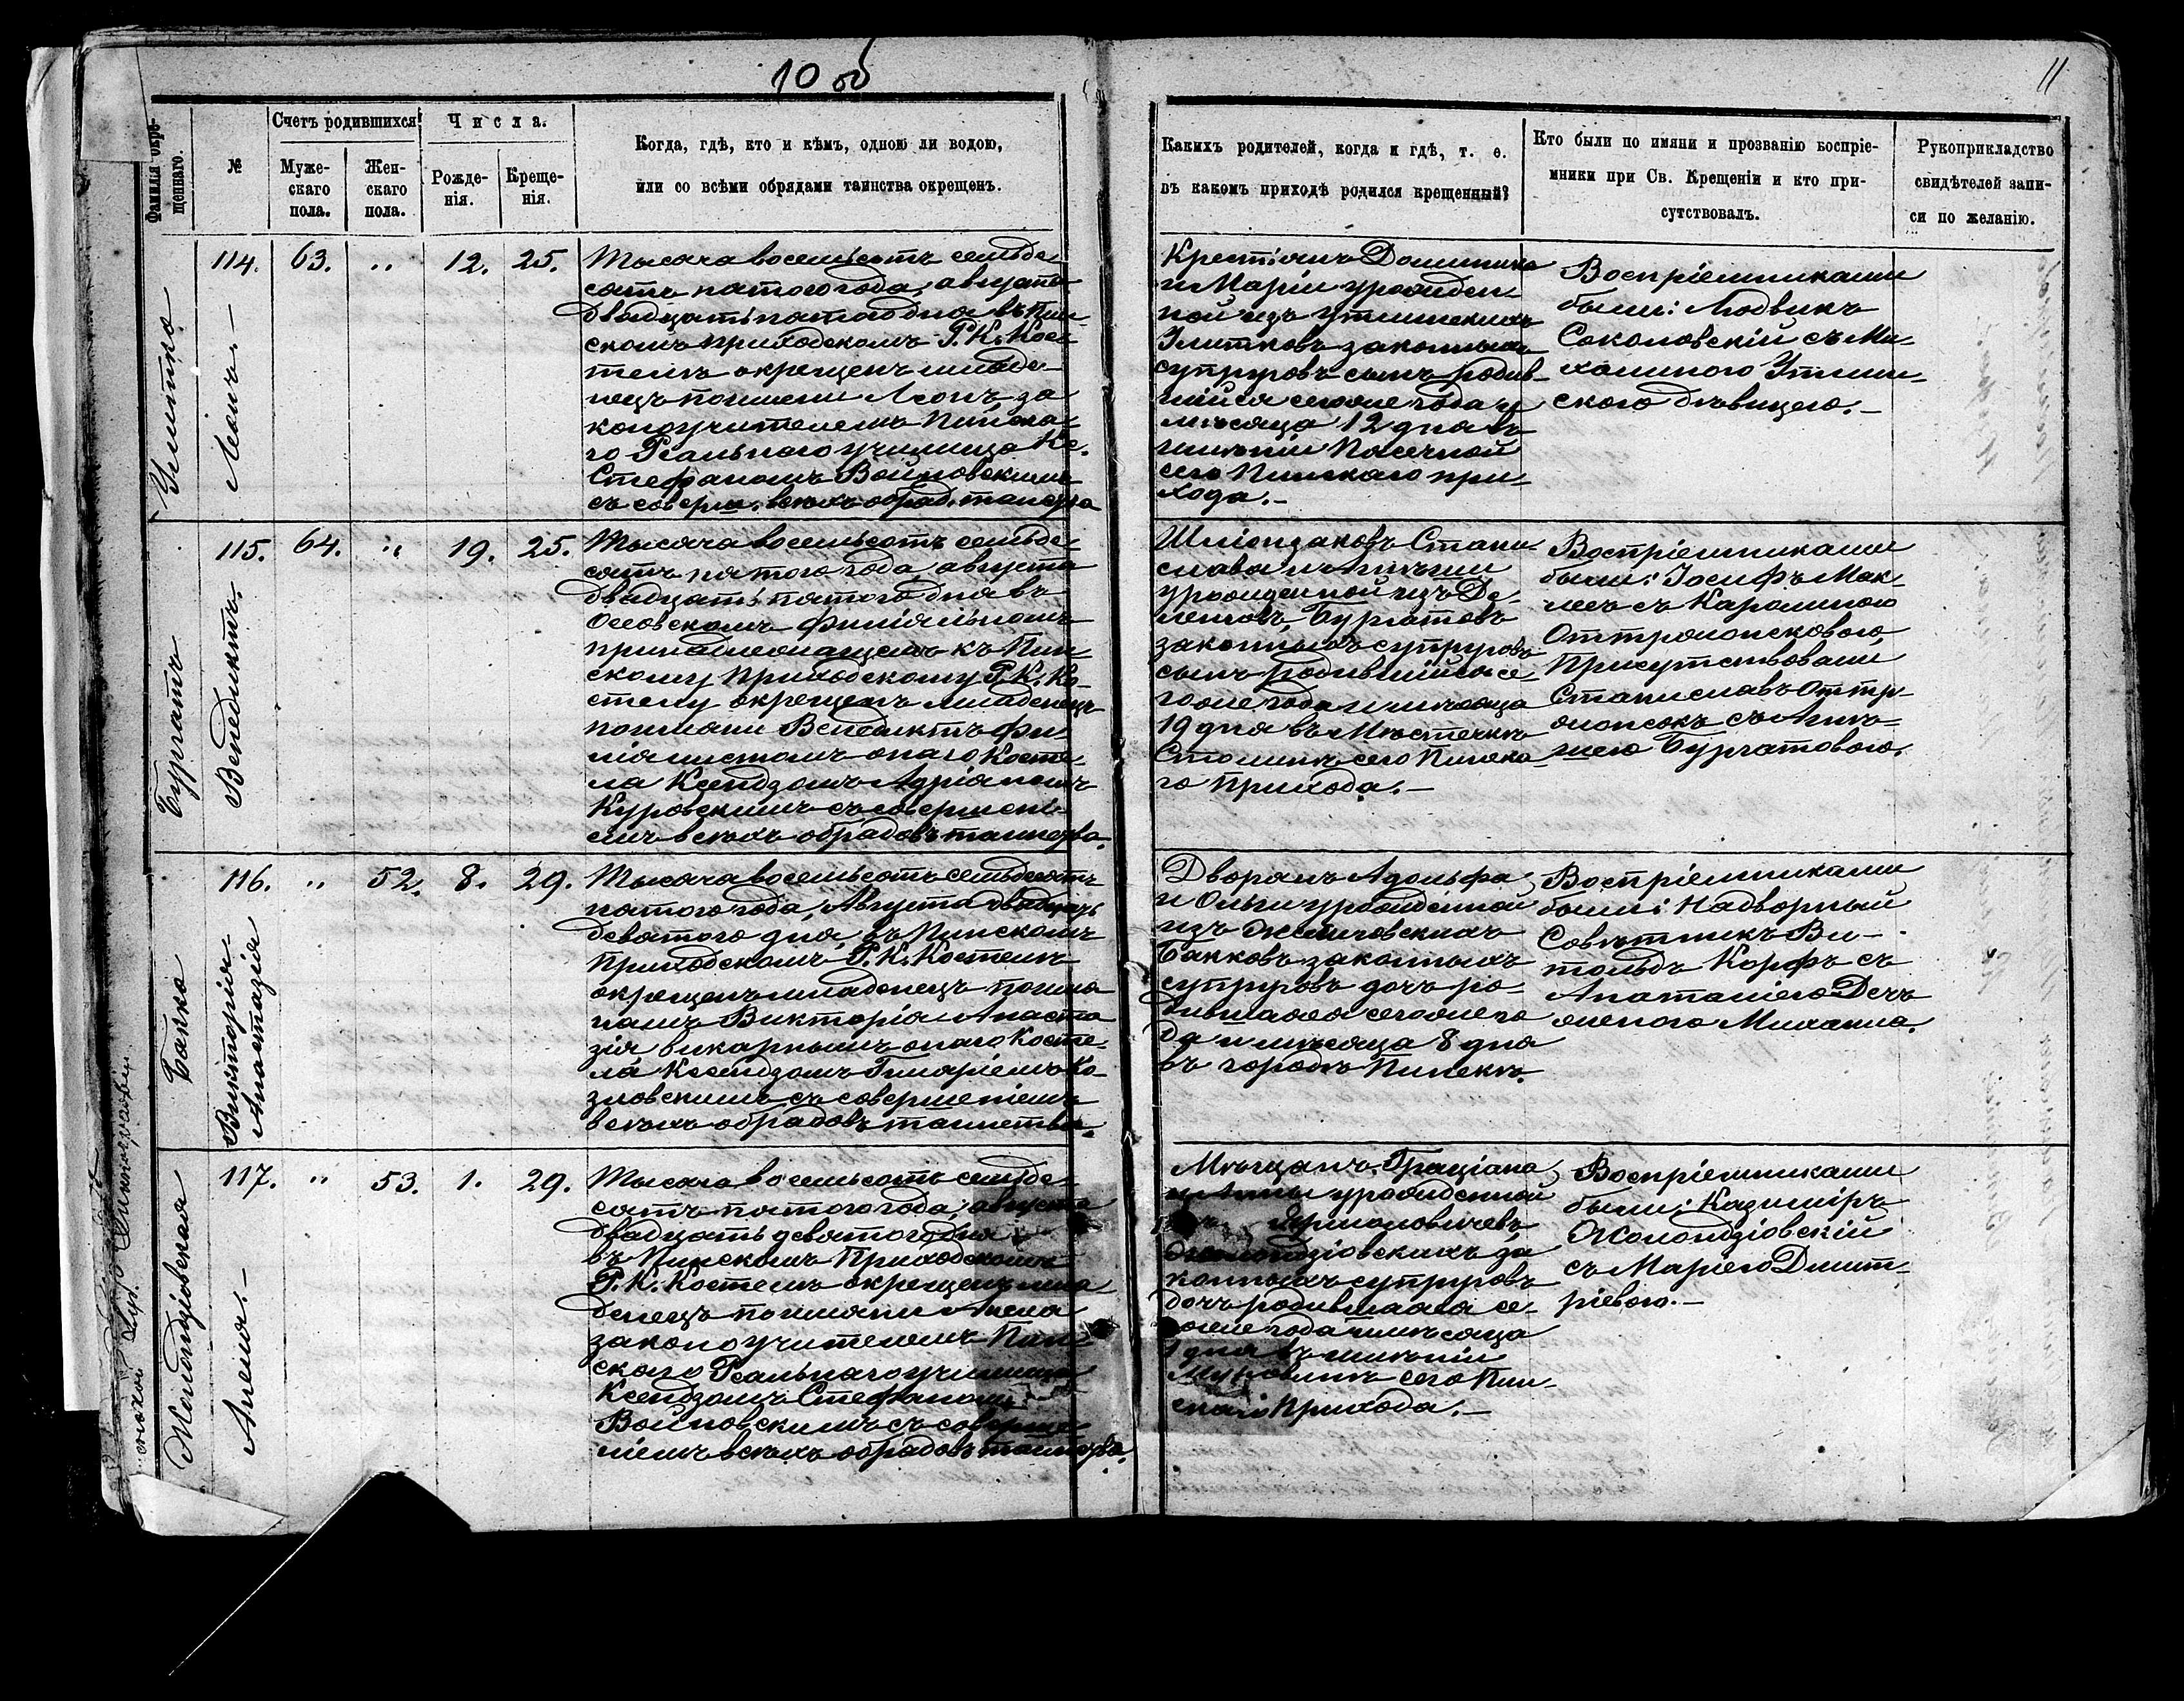 10 об
11
Фамилія окре-
щеннаго.
№
Счетъ родившихся
Муже-
скаго
пола.
Жен-
скаго
пола.
Числа.
Рожде-
нія.
Креще-
нія.
Когда, гдѣ, кто и кѣмъ, одною ли водою,
или со всѣми обрядами таинства окрещенъ.
Какихъ родителей, когда и гдѣ, т. е.
въ какомъ приходѣ родился крещенный?
Кто были по имяни и прозванію воспріе-
мники при Св. Крещеніи и кто при-
сутствовалъ.
Рукоприкладство
свидѣтелей запи-
си по желанію.
Улитка
Леонъ.—
114. 63. " 12. 25.
Тысяча восемьсотъ семьде-
сятъ пятого года, августа
двадцать пятаго дня въ Пин-
скомъ приходскомъ Р. К. Кос-
телѣ окрещенъ младе-
нецъ по имени Леонъ за
коноучителемъ Пинска-
го Реальнаго училища Кс.
Стефаномъ Войновскимъ
съ соверш. всѣхъ обряд. таинства
Крестьянъ Доминика
и Маріи урожден-
ной изъ
Улитковъ законныхъ
супруговъ сынъ родив-
шійся сегоже года и
мѣсяца 12 дня въ
имѣніи Пасечной
сего Пинскаго при-
хода.—
Воспріемниками
были: Людвикъ
Соколовскій съ Ми-
халиною
скою дѣвицею.—
Бургатъ
Венедиктъ.
115. 64. " 19. 25.
Тысяча восемьсотъ семьде-
сятъ пятого года августа
двадцать пятого дня въ
Осовскомъ филіяльномъ
принадлежащемъ къ Пин-
скому приходскому Р. К. Ко-
стелу окрещенъ младенецъ
по имяни Венедиктъ фи-
ліялистомъ онаго Косте-
ла Ксендзомъ Адріяномъ
Куровскимъ съ совершені-
емъ всѣхъ обрядовъ таинства.
Стани-
слава и
урожденной изъ Де-
Бургатовъ
законныхъ супруговъ
сынъ родившійся се-
гоже года и мѣсяца
19 дня въ Мѣстечкѣ
Столинѣ сего Пинска-
го прихода.—
Воспріемниками
были: Іосифъ Мак-
съ Каролиною
Присутствовали
Станиславъ
съ
Бургатовою.
Бакка
Викторія
Анастазія
116. " 52. 8. 29.
Тысяча восемьсотъ семьдесятъ
пятого года, Августа двадцать
девятого дня, въ Пинскомъ
Приходскомъ Р. К. Костелѣ
окрещенъ младенецъ по име-
намъ Викторія Анаста
зія викарнымъ онаго Косте-
ла Ксендзомъ Гиляріемъ Ко-
зловскимъ съ совершеніемъ
всѣхъ обрядовъ таинства.
Дворянъ Адольфа
и Ольги урожденной
изъ
Бакковъ законныхъ
супруговъ дочь ро-
дившаяся сегоже го
да и мѣсяца 8 дня
въ городѣ Пинскѣ.
Воспріемниками
были: Надворный
Совѣтникъ Ви-
тольдъ Корфъ съ
женою Михаила.
Жолондзіовская
Анеля.—
117. " 53. 1. 29.
Тысяча восемьсотъ семьде-
сятъ пятого года, августа
двадцать девятого дня
въ Пинскомъ Приходскомъ
Р. К. Костелѣ окрещенъ мла
денецъ по имяни Анеля
законоучителемъ Пин-
скаго Реальнаго училища
Ксендзомъ Стефаномъ
Войновскимъ съ соверше-
ніемъ всѣхъ обрядовъ таинства.
Мѣщанъ Граціана
и Анны урожденной
Ярмоловичевъ
Жолондзіовскихъ за
конныхъ супруговъ
дочь родившаяся се-
гоже года и мѣсяца
1 дня въ имѣніи
сего Пин-
скаго Прихода.—
Воспріемниками
были: Казиміръ
Жолондзіовскій
съ Маріею Дмит-
ріевою.—